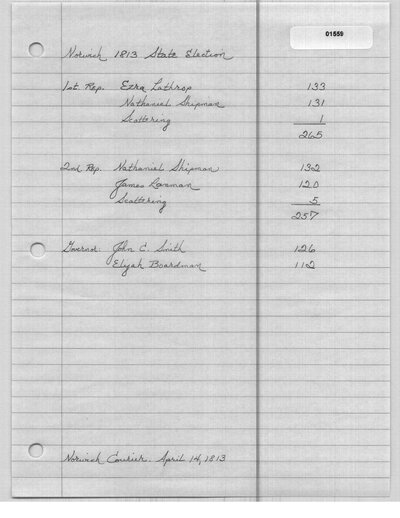 01559
Norwich 1813 State Election
1st. Rep. Ezra Lathrop 133
Nathaniel Shipman 131
Scattering 1
265
2nd Rep. Nathaniel Shipman 132
James Lanman 120
Scattering 5
257
Governor: John C. Smith 126
Elijah Boardman 112
Norwich Courier. April 14, 1813